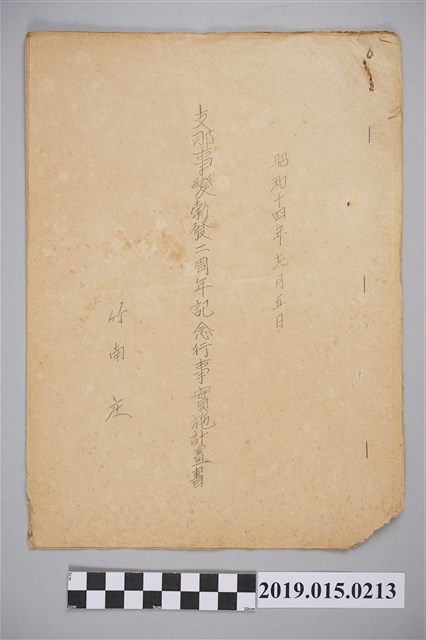 昭和十四年七月五日
支那事變勃發二周年記念行事實施計畫書
竹南庄
2019.015.0213